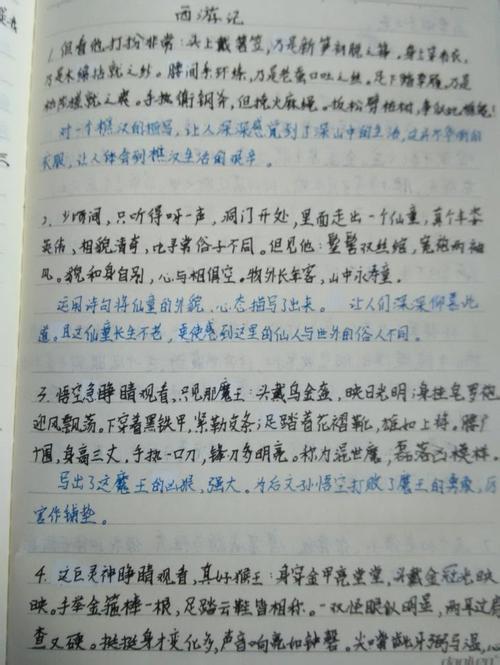 西游记
1. 但看他打扮非常：头上戴箬笠，乃是新笋初脱之箨。身上穿布衣，
乃是木绵捻就之纱。腰间系环绦，乃是老蚕口吐之丝。足下踏草履，乃是
就之爽。手执衡钢斧，但挽火麻绳。扳松劈枯树，争似此樵能！
对一个樵汉的描写，让人深深感觉到了深山中的生活，
衣服，让人体会到樵汉生活的艰辛。
2、少顷间，只听得呀一声，洞门开处，里面走出一个仙童，真个丰姿
英伟，相貌清奇，比寻常俗子不同。但见他：髽髻双丝绾，宽袍两袖
风。貌和身自别，心与相俱空。物外长年客，山中永寿童。
运用诗句将仙童的外貌、心态描写了出来。让人们深深仰慕此
道。且这仙童长生不老，更使感到这里的仙人与世外的俗人不同。
3. 悟空急睁睛观看，只见那魔王：头戴乌金盔，映日光明；身挂皂罗袍，
迎风飘荡。下穿着黑铁甲，紧勒皮条；足踏着花褶靴，雄如上将。腰广
十围，身高三丈，手执一口刀，锋刃多明亮。称为混世魔，磊落凶模样。
写出了这魔王的凶狠，强大。为后文孙悟空打败了魔王的勇敢，厉
害作铺垫。
4. 这巨灵神睁睛观看，真好猴王：身穿金甲亮堂堂，头戴金冠光映
映。手举金箍棒一根，足踏云鞋皆相称。一双怪眼似明星，两耳过肩
查又硬。挺挺身才变化多，声音响亮如钟磬。尖嘴龇牙弼马温，